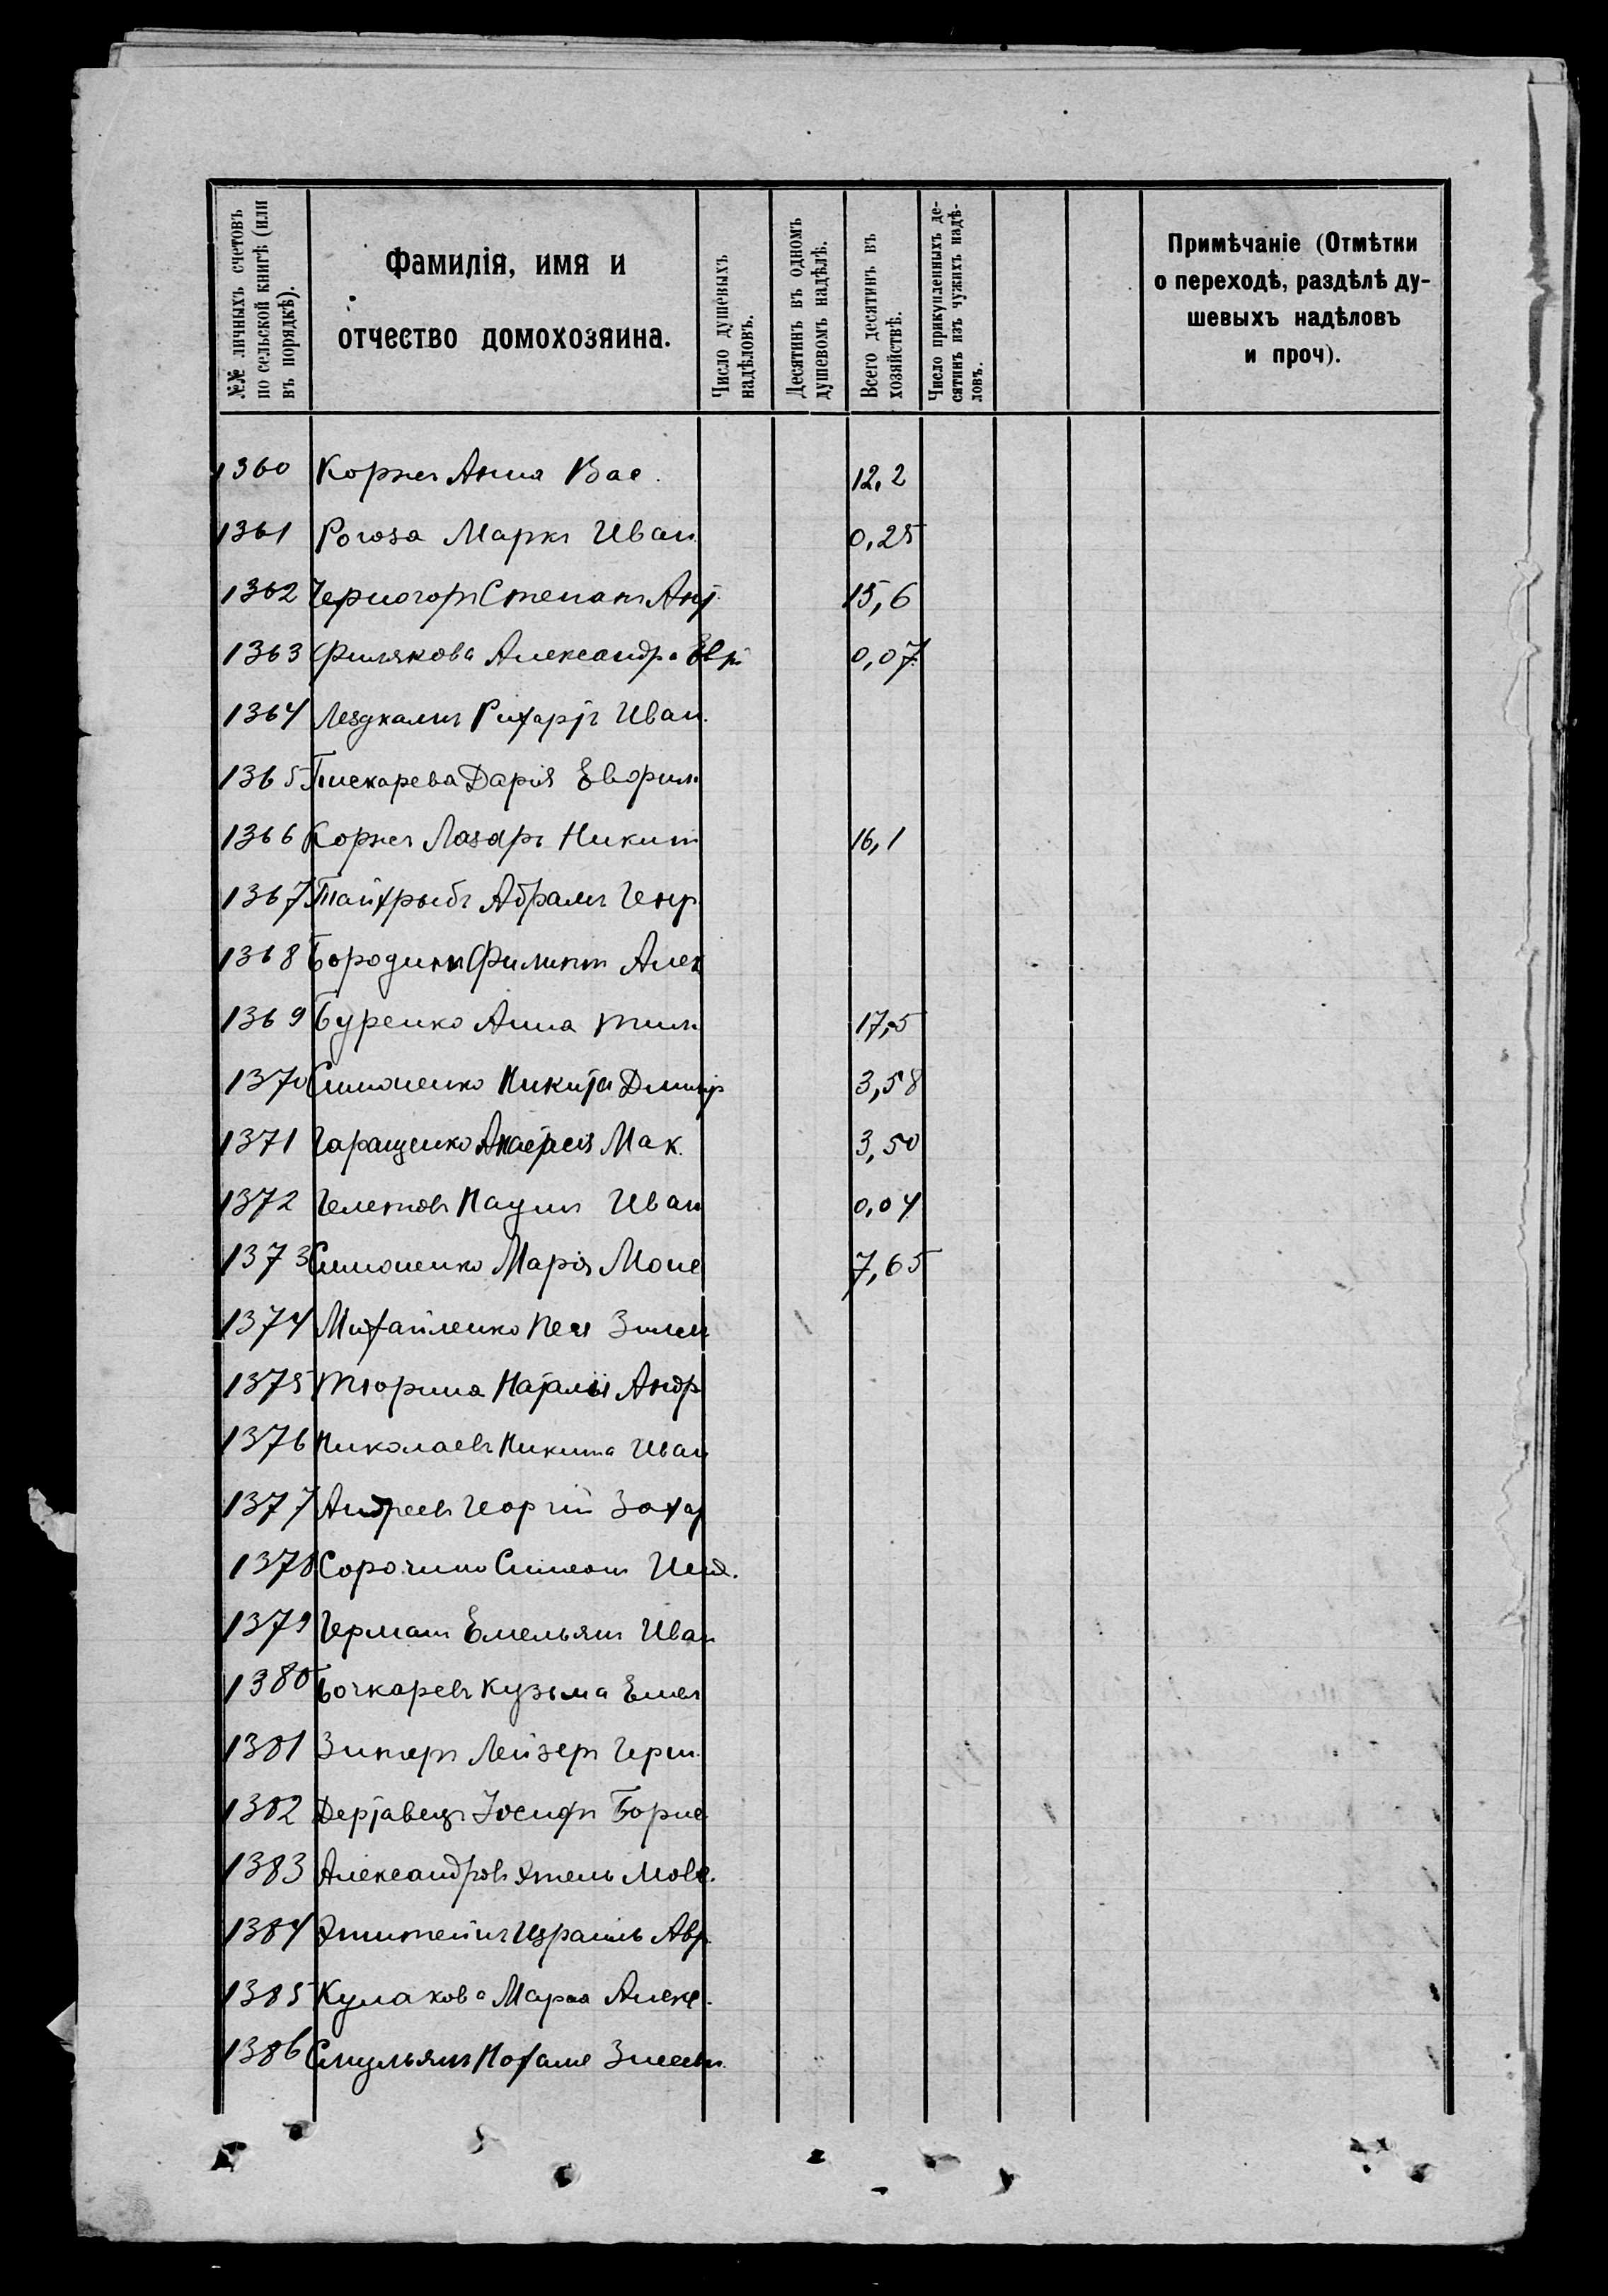 №№ личныхъ счетовъ по сельской книгѣ (или въ порядкѣ).
Фамилія, имя и отчество домохозяина.
Число душевыхъ надѣловъ.
Десятинъ въ одномъ душевомъ надѣлѣ.
Всего десятинъ въ хозяйствѣ.
Число прикупленныхъ десятинъ изъ чужихъ надѣловъ.
Примѣчаніе (Отмѣтки о переходѣ, раздѣлѣ душевыхъ надѣловъ и проч).
1360 Корнег Анна Вас. 12,2
1361 Рогоза Маркъ Иван 0,25
1362 Черногоръ Степанъ Ант. 15,6
1363 Филякова Александра 0,07
1364 Рихартъ Иван.
1365 Пискарева Дарія Евфим
1366 Лазарь Никит 16,1
1367 Абрамъ Генр
1368 Бородинъ Филиппъ Алек
1369 Буренко Анна Тим 17,5
1370 Симоненко Никита Дмитр 3,58
1371 Гаращенко Анастасія Мак. 3,50
1372 Наумъ Иван 0,04
1373 Симоненко Марія Моис 7,65
1374 Михайленко
1375 Тюрина Наталія Андр
1376 Николаевъ Никита Иван
1377 Андреевъ Георгій Захар
1378 Симеонъ
1379 Германъ Емельянъ Иван
1380 Бочкаревъ Кузьма Емел
1381 Зингеръ Лейзеръ Герш.
1382 Державецъ Іосифъ Борис
1383 Александровъ Этель Мовш.
1384 Израиль Авр.
1385 Кулакова Марфа Алекс.
1386